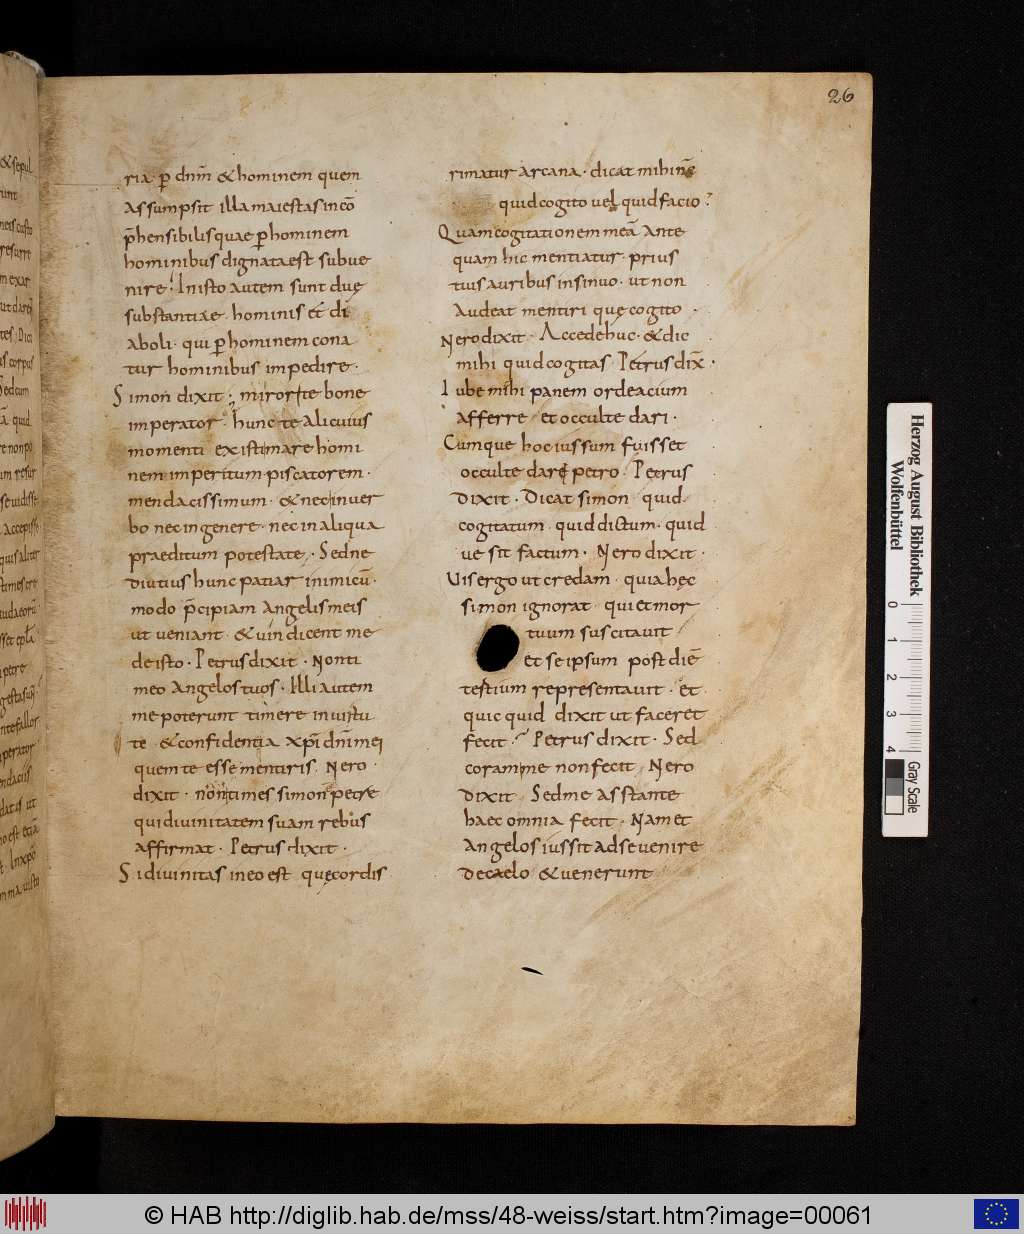 26
ria p̄ dn̄m & hominem quem
assumpsit illa maiestas incō
p̄hensibilis quae p̄ hominem
hominibus dignata est subue
nire. In isto autem sunt duę
substantiae. hominis et di
aboli. qui p̄ hominem cona
tur hominibus impedire.
Simon dixit. miror te bone
imperator. hunc te alicuius
momenti existimare homi
nem imperitum piscatorem.
mendacissimum. & nec in uer
bo nec in genere. nec in aliqua
praeditum potestate. Sed ne
diutius hunc patiar inimicū.
modo p̄cipiam angelis meis
ut ueniant. & uindicent me
de isto. Petrus dixit. Non ti
meo angelos tuos. Illi autem
me poterunt timere in uirtu
te & confidentia xpī dn̄i mei
quem te esse mentiris. Nero
dixit. non times simon petre
qui diuinitatem suam rebus
affirmat. Petrus dixit.
Si diuinitas in eo est quę cordis
rimatur arcana. dicat mihi
quid cogito uel quid facio?
Quam cogitationem meā ante
quam hic mentiatur. prius
tuis auribus insinuo. ut non
audeat mentiri quę cogito.
Nero dixit. Accede huc. & dic
mihi quid cogitas. Petrus dix̄.
Iube mihi panem ordeacium
afferre et occulte dari.
Cumque hoc iussum fuisset
occulte dare petro. Petrus
dixit. Dicat simon quid
cogitatum. quid dictum. quid
ue sit factum. Nero dixit.
Uis ergo ut credam. quia hęc
simon ignorat. qui et mor
tuum suscitauit
et se ipsum post diē
tertium representauit. et
quicquid dixit ut faceret
fecit. Petrus dixit. Sed
coram me non fecit. Nero
dixit. Sed me asstante
haec omnia fecit. Nam et
angelos iussit ad se uenire
de caelo & uenerunt
Herzog August Bibliothek
Wolfenbüttel
0 1 2 3 4
Gray Scale
© HAB http://diglib.hab.de/mss/48-weiss/start.htm?image=00061